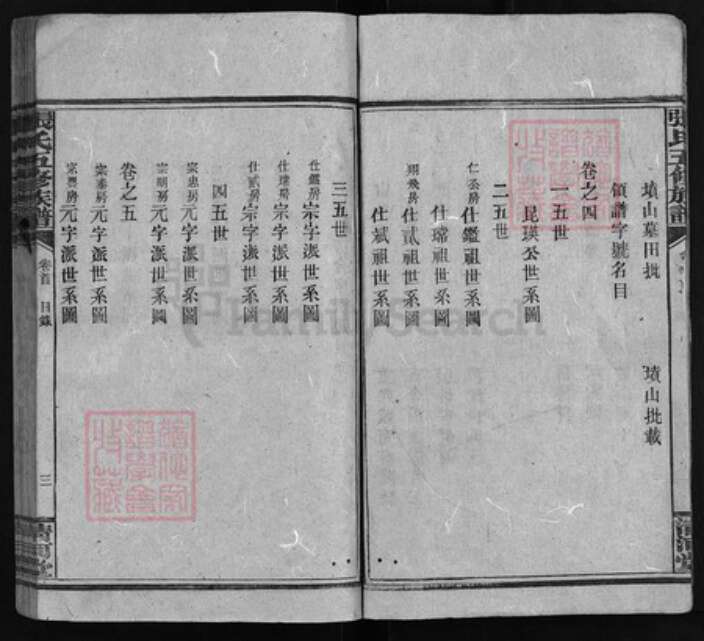 墳山墓田批　墳山批載
領譜字號名目
卷之四
一五世
昆瑛公世系圖
二五世
仁公房仕鑑祖世系圖
仕瑞祖世系圖
翔飛房仕貳祖世系圖
仕斌祖世系圖
三五世
仕鑑房宗字派世系圖
仕瑞房宗字派世系圖
仕貳房宗字派世系圖
四五世
宗忠房元字派世系圖
宗朗房元字派世系圖
卷之五
宗泰房元字派世系圖
元字派世系圖
張氏五修族譜
卷首
目錄
三
清河堂
張氏五修族譜
清河堂
FamilySearch